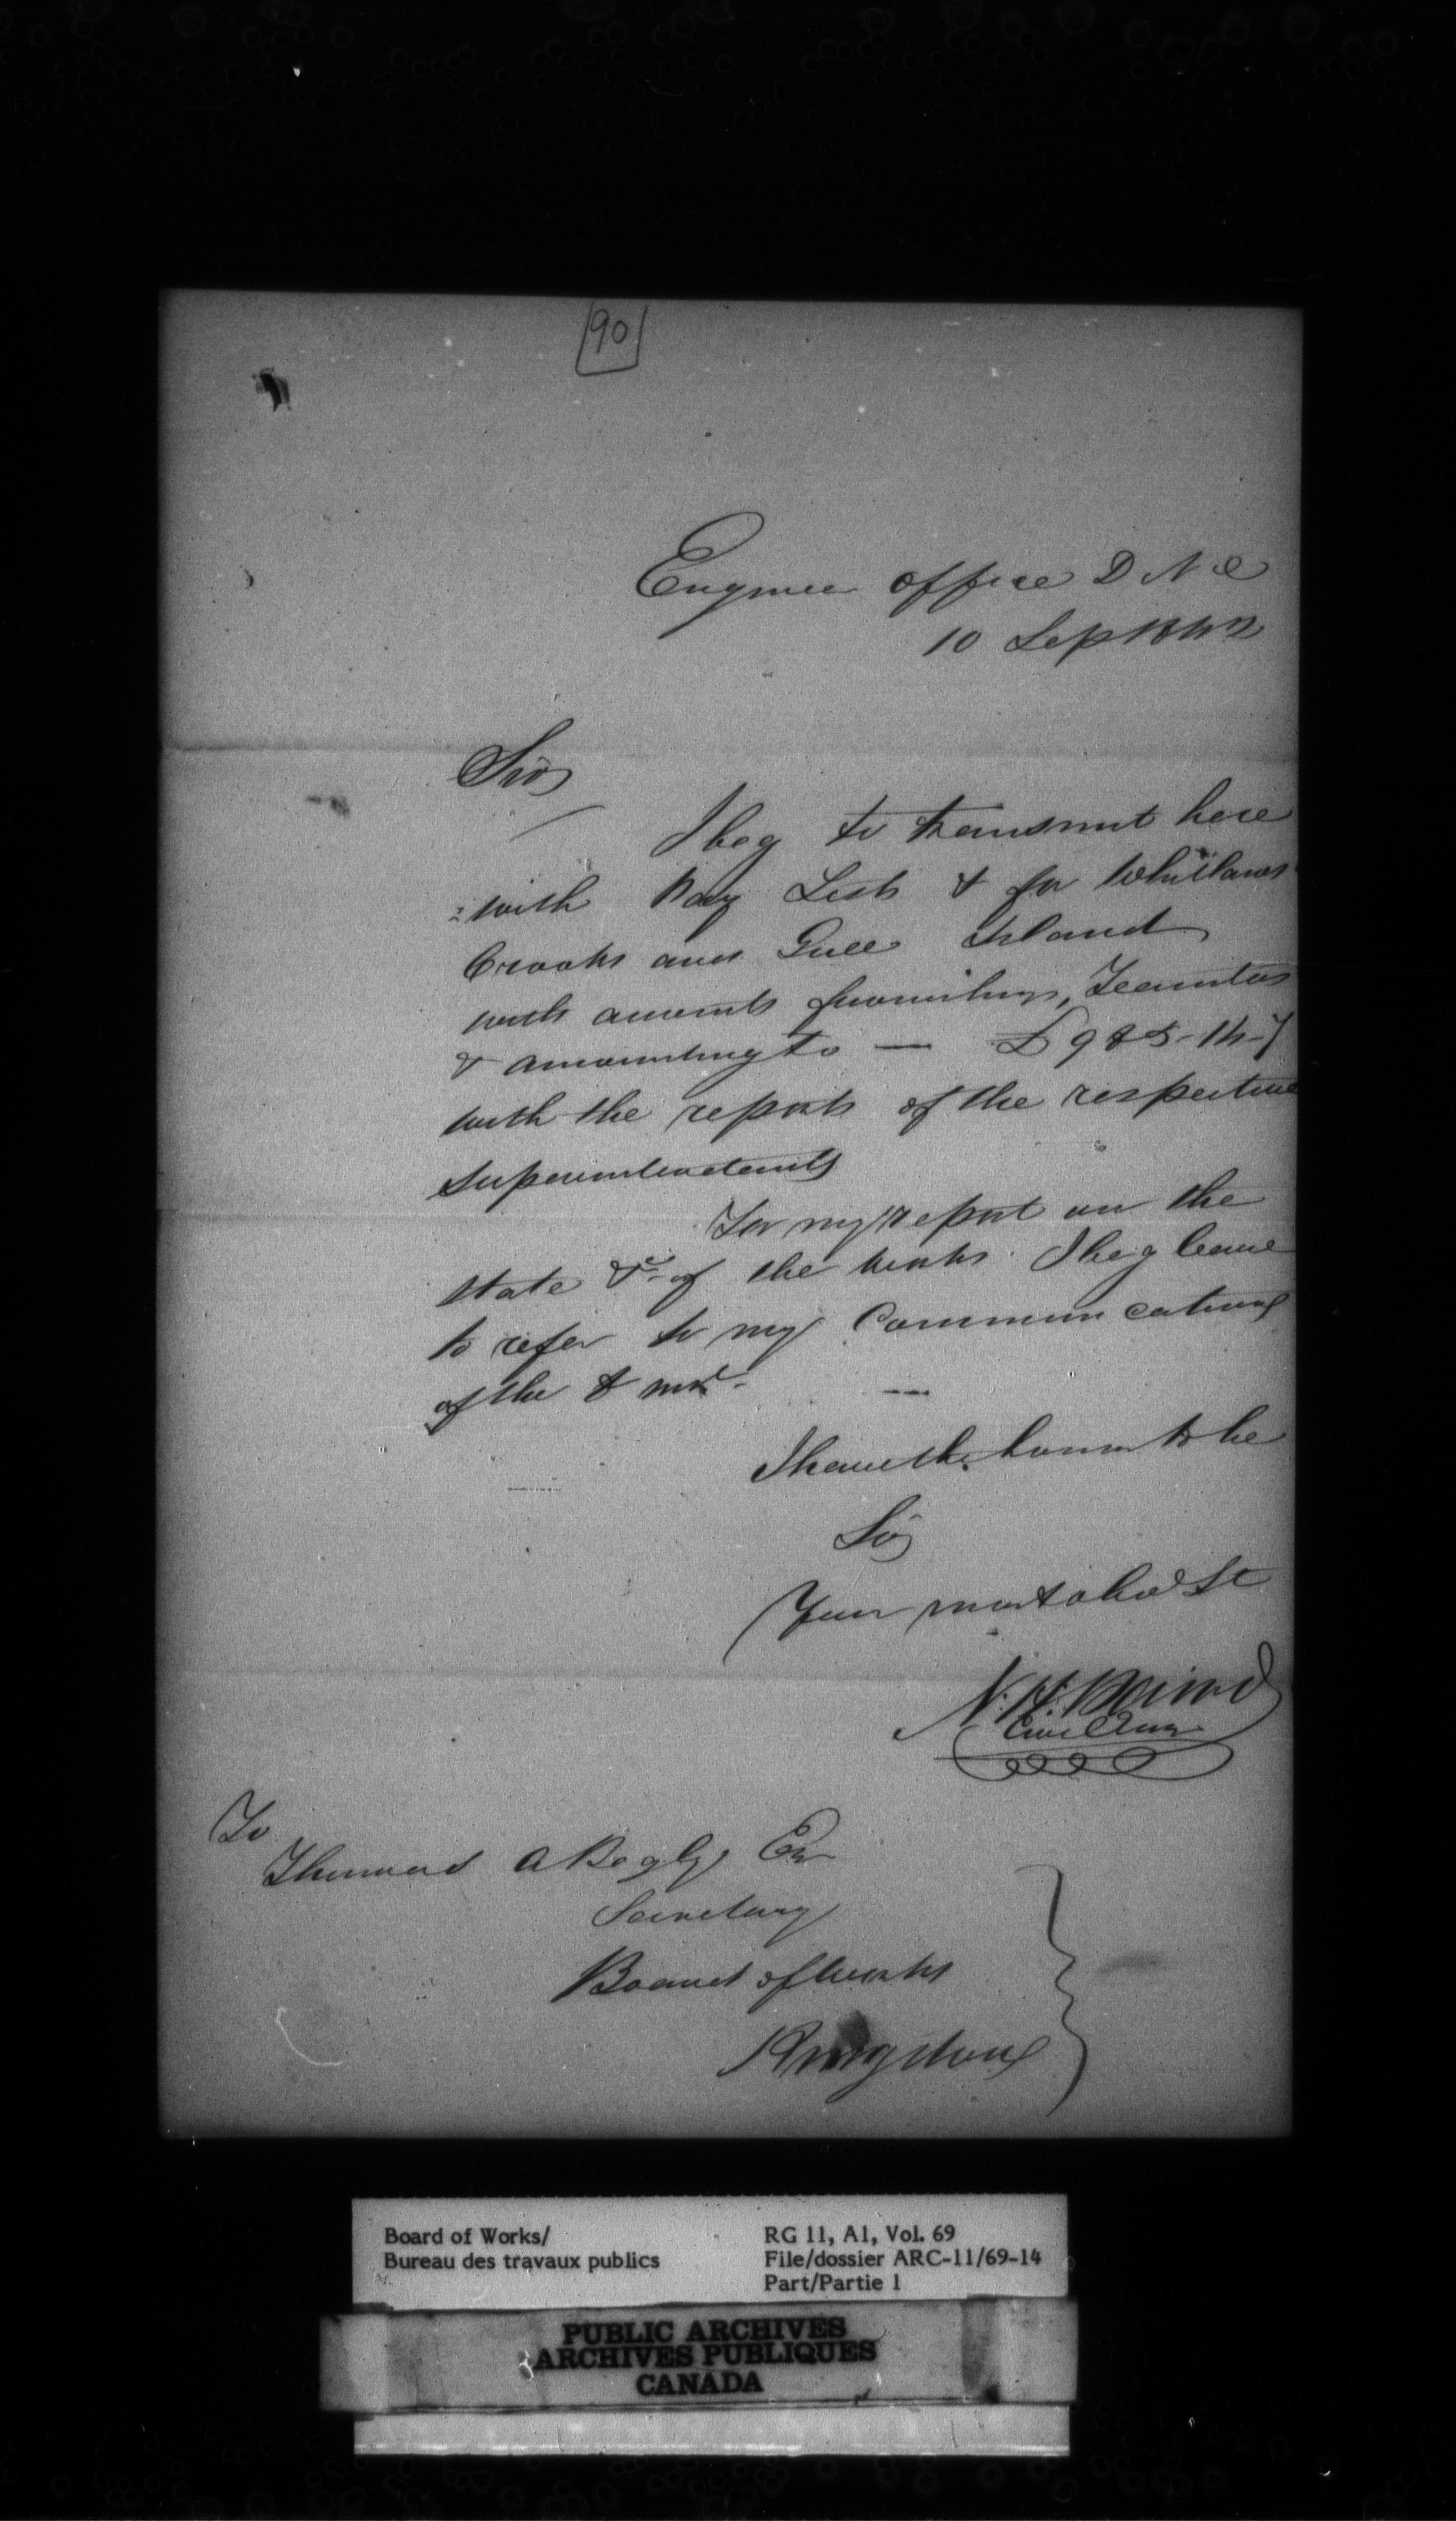 90
Engineer office D N C
10 Sep 1842
Sir,
I beg to transmit here
=with Pay Lists & for Whitlaws
Crooks and Gull Island
with accounts furnishings, Teamsters
& amounting to — £985-14-7
with the reports of the respective
Superintendents
For my report on the
state &c of the works I beg leave
to refer to my Communications
of the 8 inst. —
I have the honor to be
Sir,
Your most obed St
N. H. Baird
Civil Engr
To
Thomas A Begly Esr
Secretary
Board of Works
Kingston
Board of Works/
Bureau des travaux publics
RG 11, A1, Vol. 69
File/dossier ARC-11/69-14
Part/Partie 1
PUBLIC ARCHIVES
ARCHIVES PUBLIQUES
CANADA